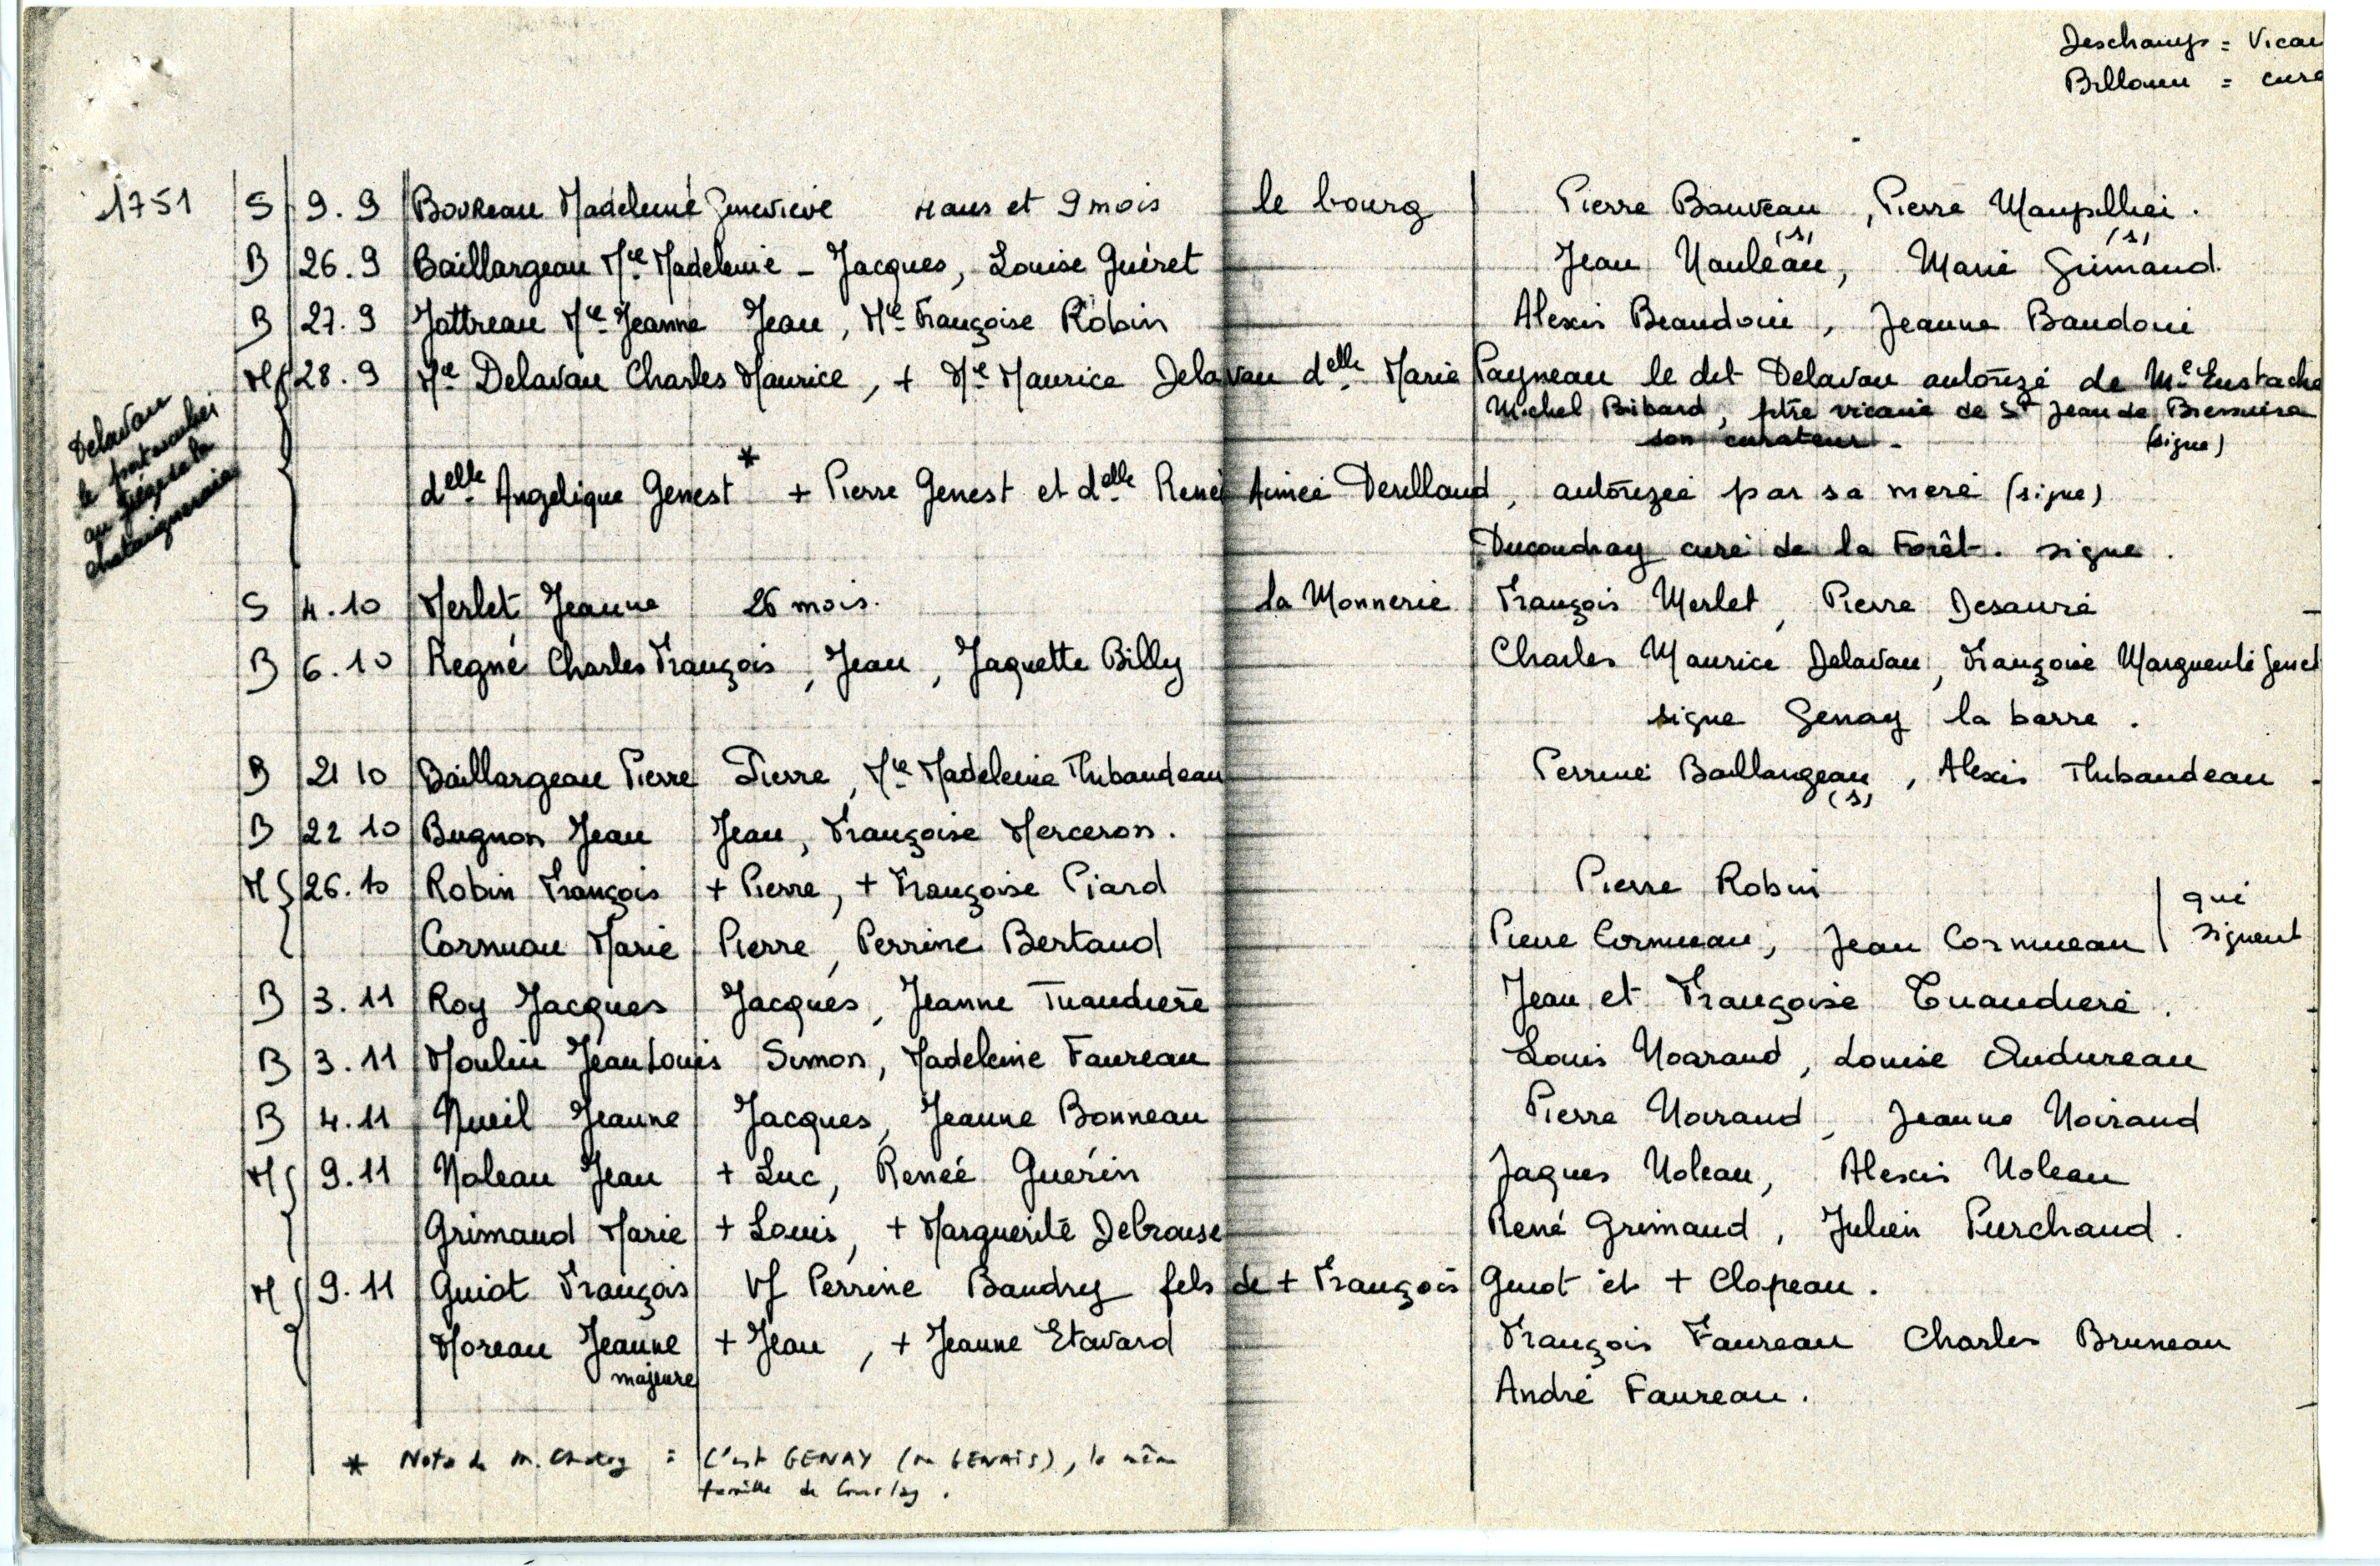 Deschamps = Vicai
Billouin = curé
1751 S 9.9 Boureau Madeleine Geneviève 4 ans et 9 mois le bourg Pierre Bauveau, Pierre Maupillier.
(s) (s)
B 26.9 Baillargeau Mie Madeleine - Jacques, Louise Guéret Jean Nauleau, Marie Grimaud.
B 27.9 Jattreau Mie Jeanne Jean, Mie Françoise Robin Alexis Beaudoin, Jeanne Baudoin
M 28.9 Me Delavau Charles Maurice, + Me Maurice Delavau delle Marie Payneau le dit Delavau autorizé de Me Eustache
Michel Bibard, ptre vicaire de St Jean de Bressuire
son curateur. (signe)
Delavau
le
au siège de la
chataigneraie
delle Angelique Genest * + Pierre Genest et delle Renée Aimée Derilland, autorizée par sa mere (signe)
Ducoudray curé de la Forêt. signe.
S 4.10 Merlet Jeanne 26 mois. la Monnerie François Merlet, Pierre Desauré
B 6.10 Regné Charles François, Jean, Jaquette Billy Charles Maurice Delavau, Françoise Marguerite Genet
signe Genay la barre.
B 21 10 Baillargeau Pierre Pierre, Mie Madeleine Thibaudeau Perrine Baillargeau, Alexis Thibaudeau.
(s)
B 22 10 Bugnon Jean Jean, Françoise Merceron.
M 26.10 Robin François + Pierre, + Françoise Piard Pierre Robin qui
Cornuau Marie Pierre, Perrine Bertaud Pierre Cornueau, Jean Cornueau signent
B 3.11 Roy Jacques Jacques, Jeanne Tuaudière Jean et Françoise Tuaudiere.
B 3.11 Moulin Jean Louis Simon, Madeleine Faureau Louis Noaraud, Louise Audureau
B 4.11 Nueil Jeanne Jacques, Jeanne Bonneau Pierre Noiraud, Jeanne Noiraud
M 9.11 Noleau Jean + Luc, Renée Guérin Jaques Noleau, Alexis Noleau
Grimaud Marie + Louis, + Marguerite Debrouse René Grimaud, Julien Purchaud.
M 9.11 Guiot François Vf Perrine Baudry fils de + François Guiot et + Clopeau.
Moreau Jeanne + Jean, + Jeanne Etavard François Faureau Charles Bruneau
majeure
André Faureau.
* Note de M. = C'est GENAY (ou GENAIS), la même
famille de Courlay.